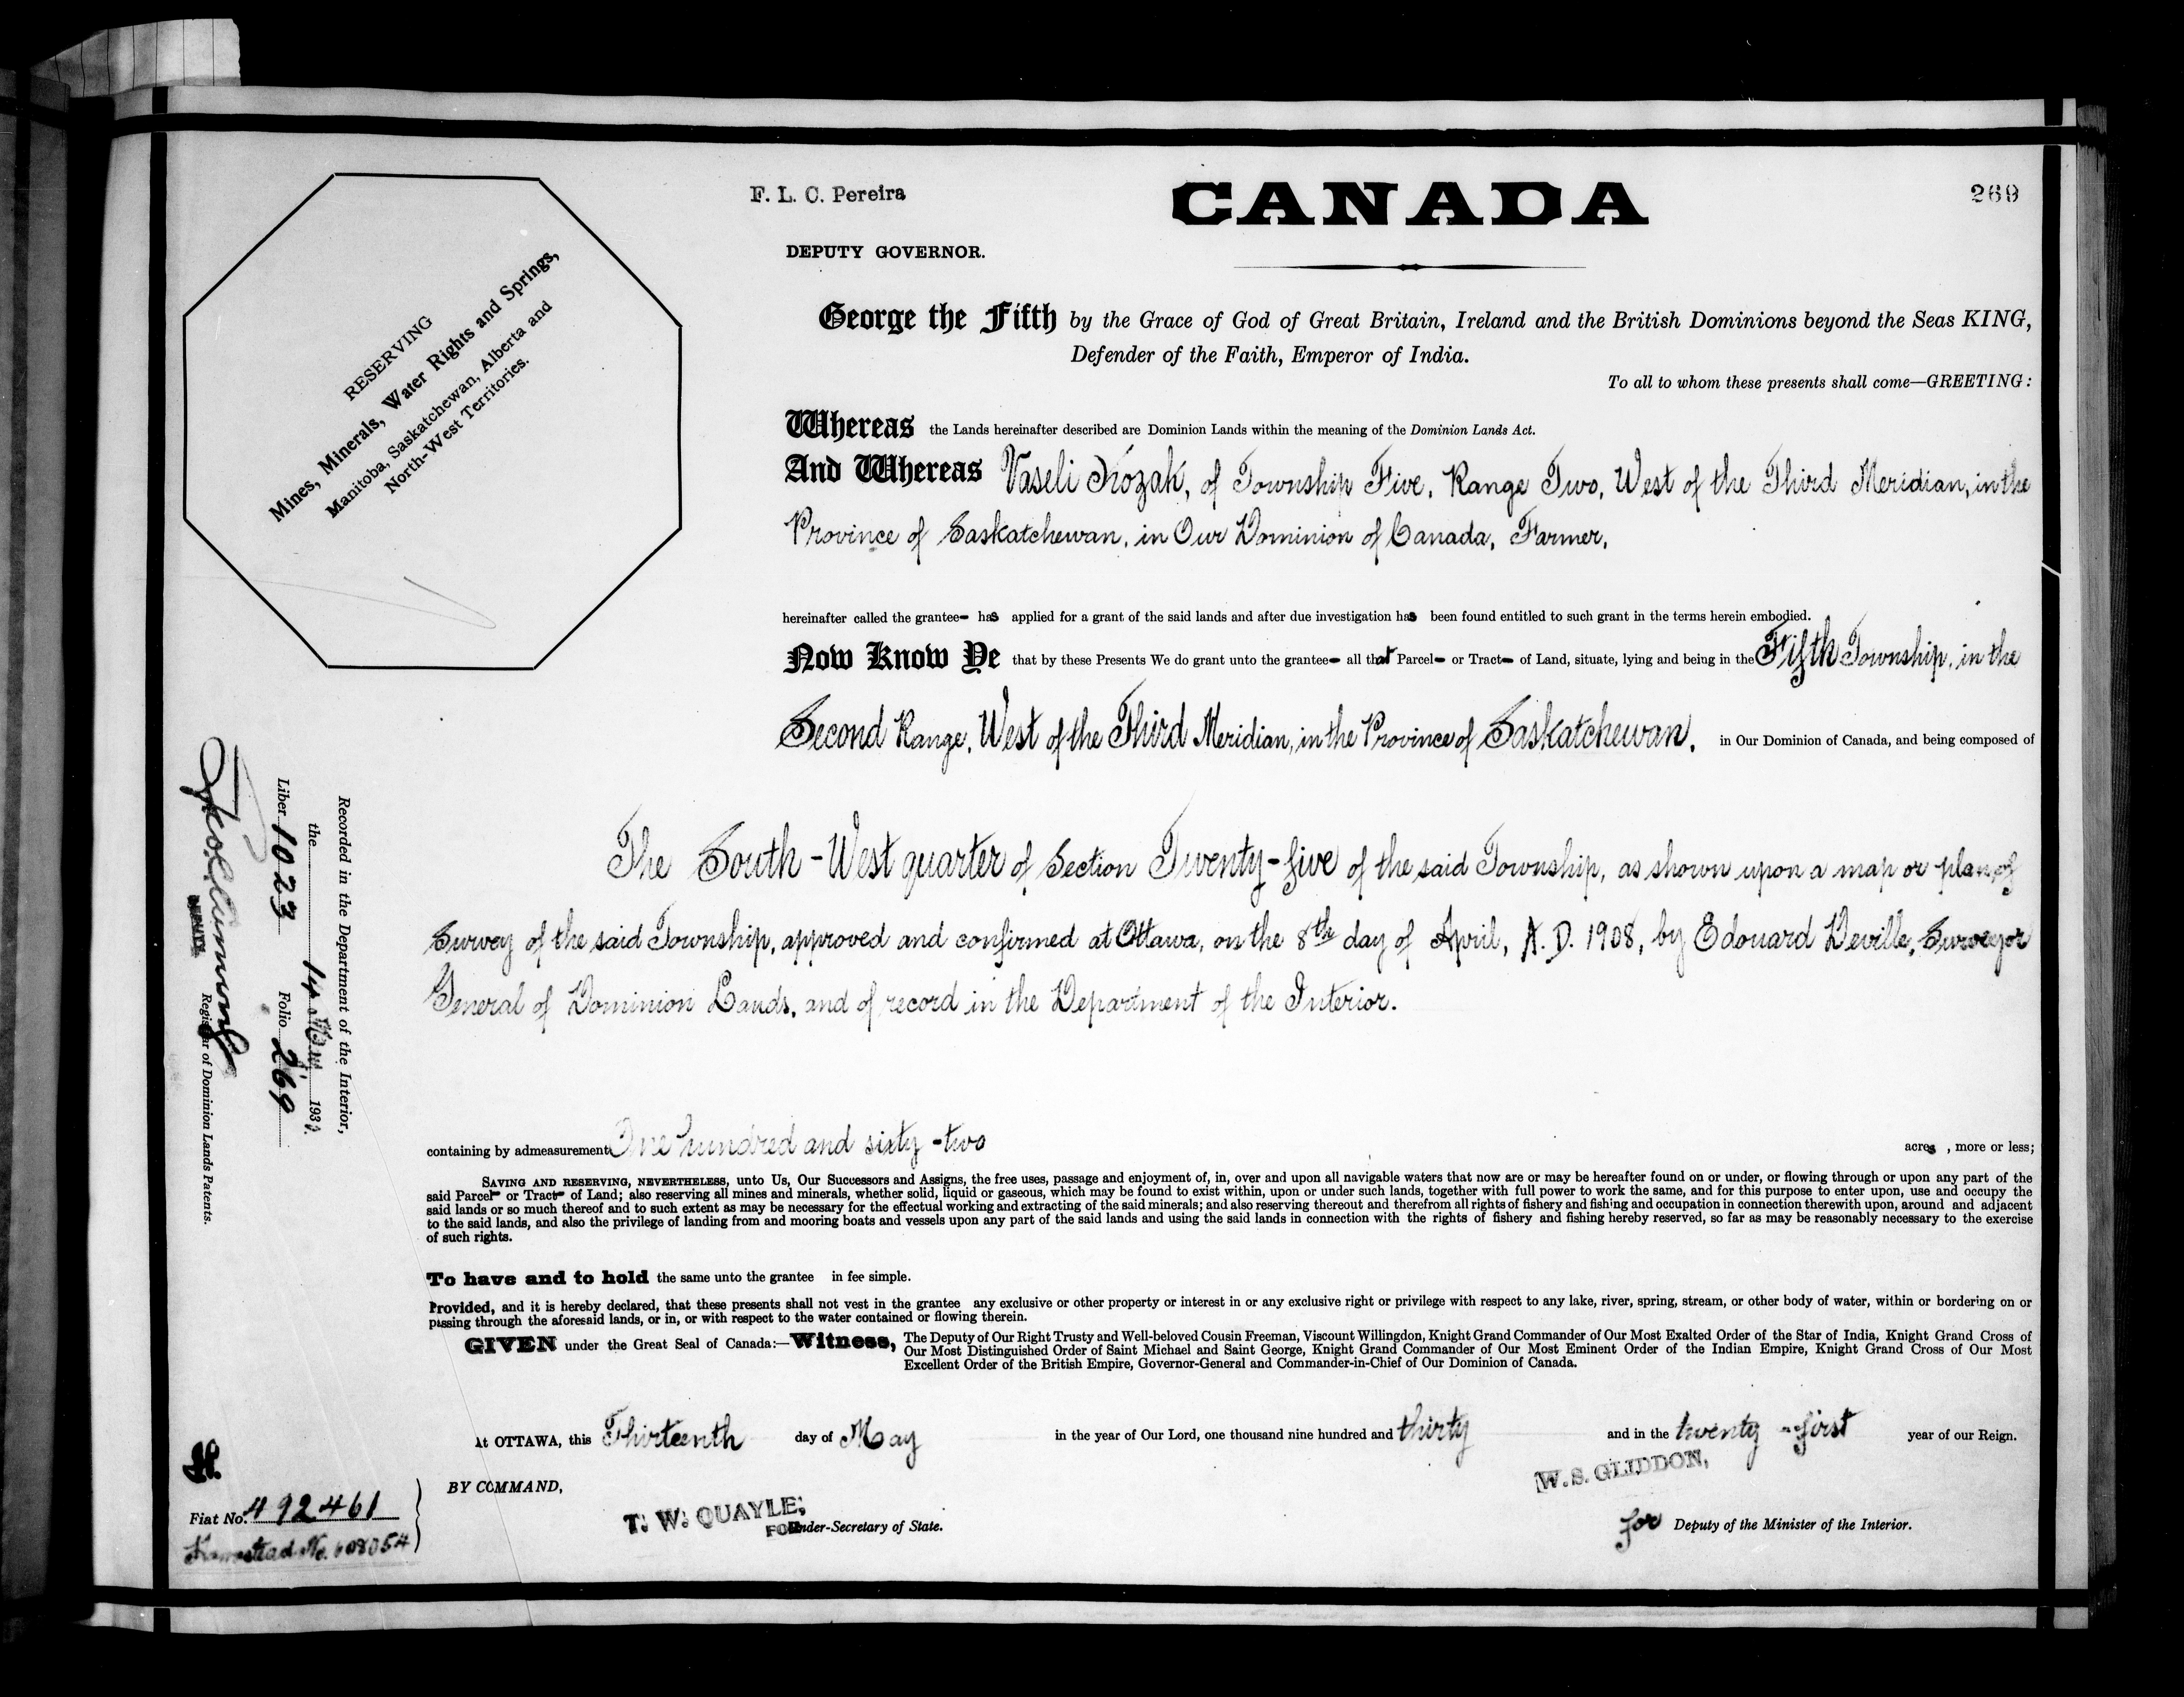 F. L. C. Pereira
CANADA
269
DEPUTY GOVERNOR.
RESERVING
Mines, Minerals, Water Rights and Springs,
Manitoba, Saskatchewan, Alberta and
North-West Territories.
George the Fifth by the Grace of God of Great Britain, Ireland and the British Dominions beyond the Seas KING,
Defender of the Faith, Emperor of India.
To all to whom these presents shall come—GREETING:
Whereas the Lands hereinafter described are Dominion Lands within the meaning of the Dominion Lands Act.
And Whereas Vaseli Kozak, of Township Five, Range Two, West of the Third Meridian, in the
Province of Saskatchewan, in Our Dominion of Canada, Farmer,
hereinafter called the grantee- has applied for a grant of the said lands and after due investigation has been found entitled to such grant in the terms herein embodied.
Now Know Ye that by these Presents We do grant unto the grantee- all that Parcel- or Tract- of Land, situate, lying and being in the Fifth Township, in the
Second Range, West of the Third Meridian, in the Province of Saskatchewan, in Our Dominion of Canada, and being composed of
The South-West quarter of Section Twenty-five of the said Township, as shown upon a map or plan of
Survey of the said Township, approved and confirmed at Ottawa, on the 8th day of April, A. D. 1908, by Edouard Deville, Surveyor
General of Dominion Lands, and of record in the Department of the Interior.
containing by admeasurement One hundred and sixty-two acres, more or less;
SAVING AND RESERVING, NEVERTHELESS, unto Us, Our Successors and Assigns, the free uses, passage and enjoyment of, in, over and upon all navigable waters that now are or may be hereafter found on or under, or flowing through or upon any part of the
said Parcel- or Tract- of Land; also reserving all mines and minerals, whether solid, liquid or gaseous, which may be found to exist within, upon or under such lands, together with full power to work the same, and for this purpose to enter upon, use and occupy the
said lands or so much thereof and to such extent as may be necessary for the effectual working and extracting of the said minerals; and also reserving thereout and therefrom all rights of fishery and fishing and occupation in connection therewith upon, around and adjacent
to the said lands, and also the privilege of landing from and mooring boats and vessels upon any part of the said lands and using the said lands in connection with the rights of fishery and fishing hereby reserved, so far as may be reasonably necessary to the exercise
of such rights.
To have and to hold the same unto the grantee in fee simple.
Provided, and it is hereby declared, that these presents shall not vest in the grantee any exclusive or other property or interest in or any exclusive right or privilege with respect to any lake, river, spring, stream, or other body of water, within or bordering on or
passing through the aforesaid lands, or in, or with respect to the water contained or flowing therein.
GIVEN under the Great Seal of Canada:—Witness, The Deputy of Our Right Trusty and Well-beloved Cousin Freeman, Viscount Willingdon, Knight Grand Commander of Our Most Exalted Order of the Star of India, Knight Grand Cross of
Our Most Distinguished Order of Saint Michael and Saint George, Knight Grand Commander of Our Most Eminent Order of the Indian Empire, Knight Grand Cross of Our Most
Excellent Order of the British Empire, Governor-General and Commander-in-Chief of Our Dominion of Canada.
At OTTAWA, this Thirteenth day of May in the year of Our Lord, one thousand nine hundred and thirty and in the twenty-first year of our Reign.
BY COMMAND,
T. W. QUAYLE,
FOR Under-Secretary of State.
W. S. GLIDDON,
for Deputy of the Minister of the Interior.
Recorded in the Department of the Interior,
the 14 May 1930.
Liber 1023 Folio 269
DEPUTY
Registrar of Dominion Lands Patents.
Fiat No. 492461
Homestead No. 608054